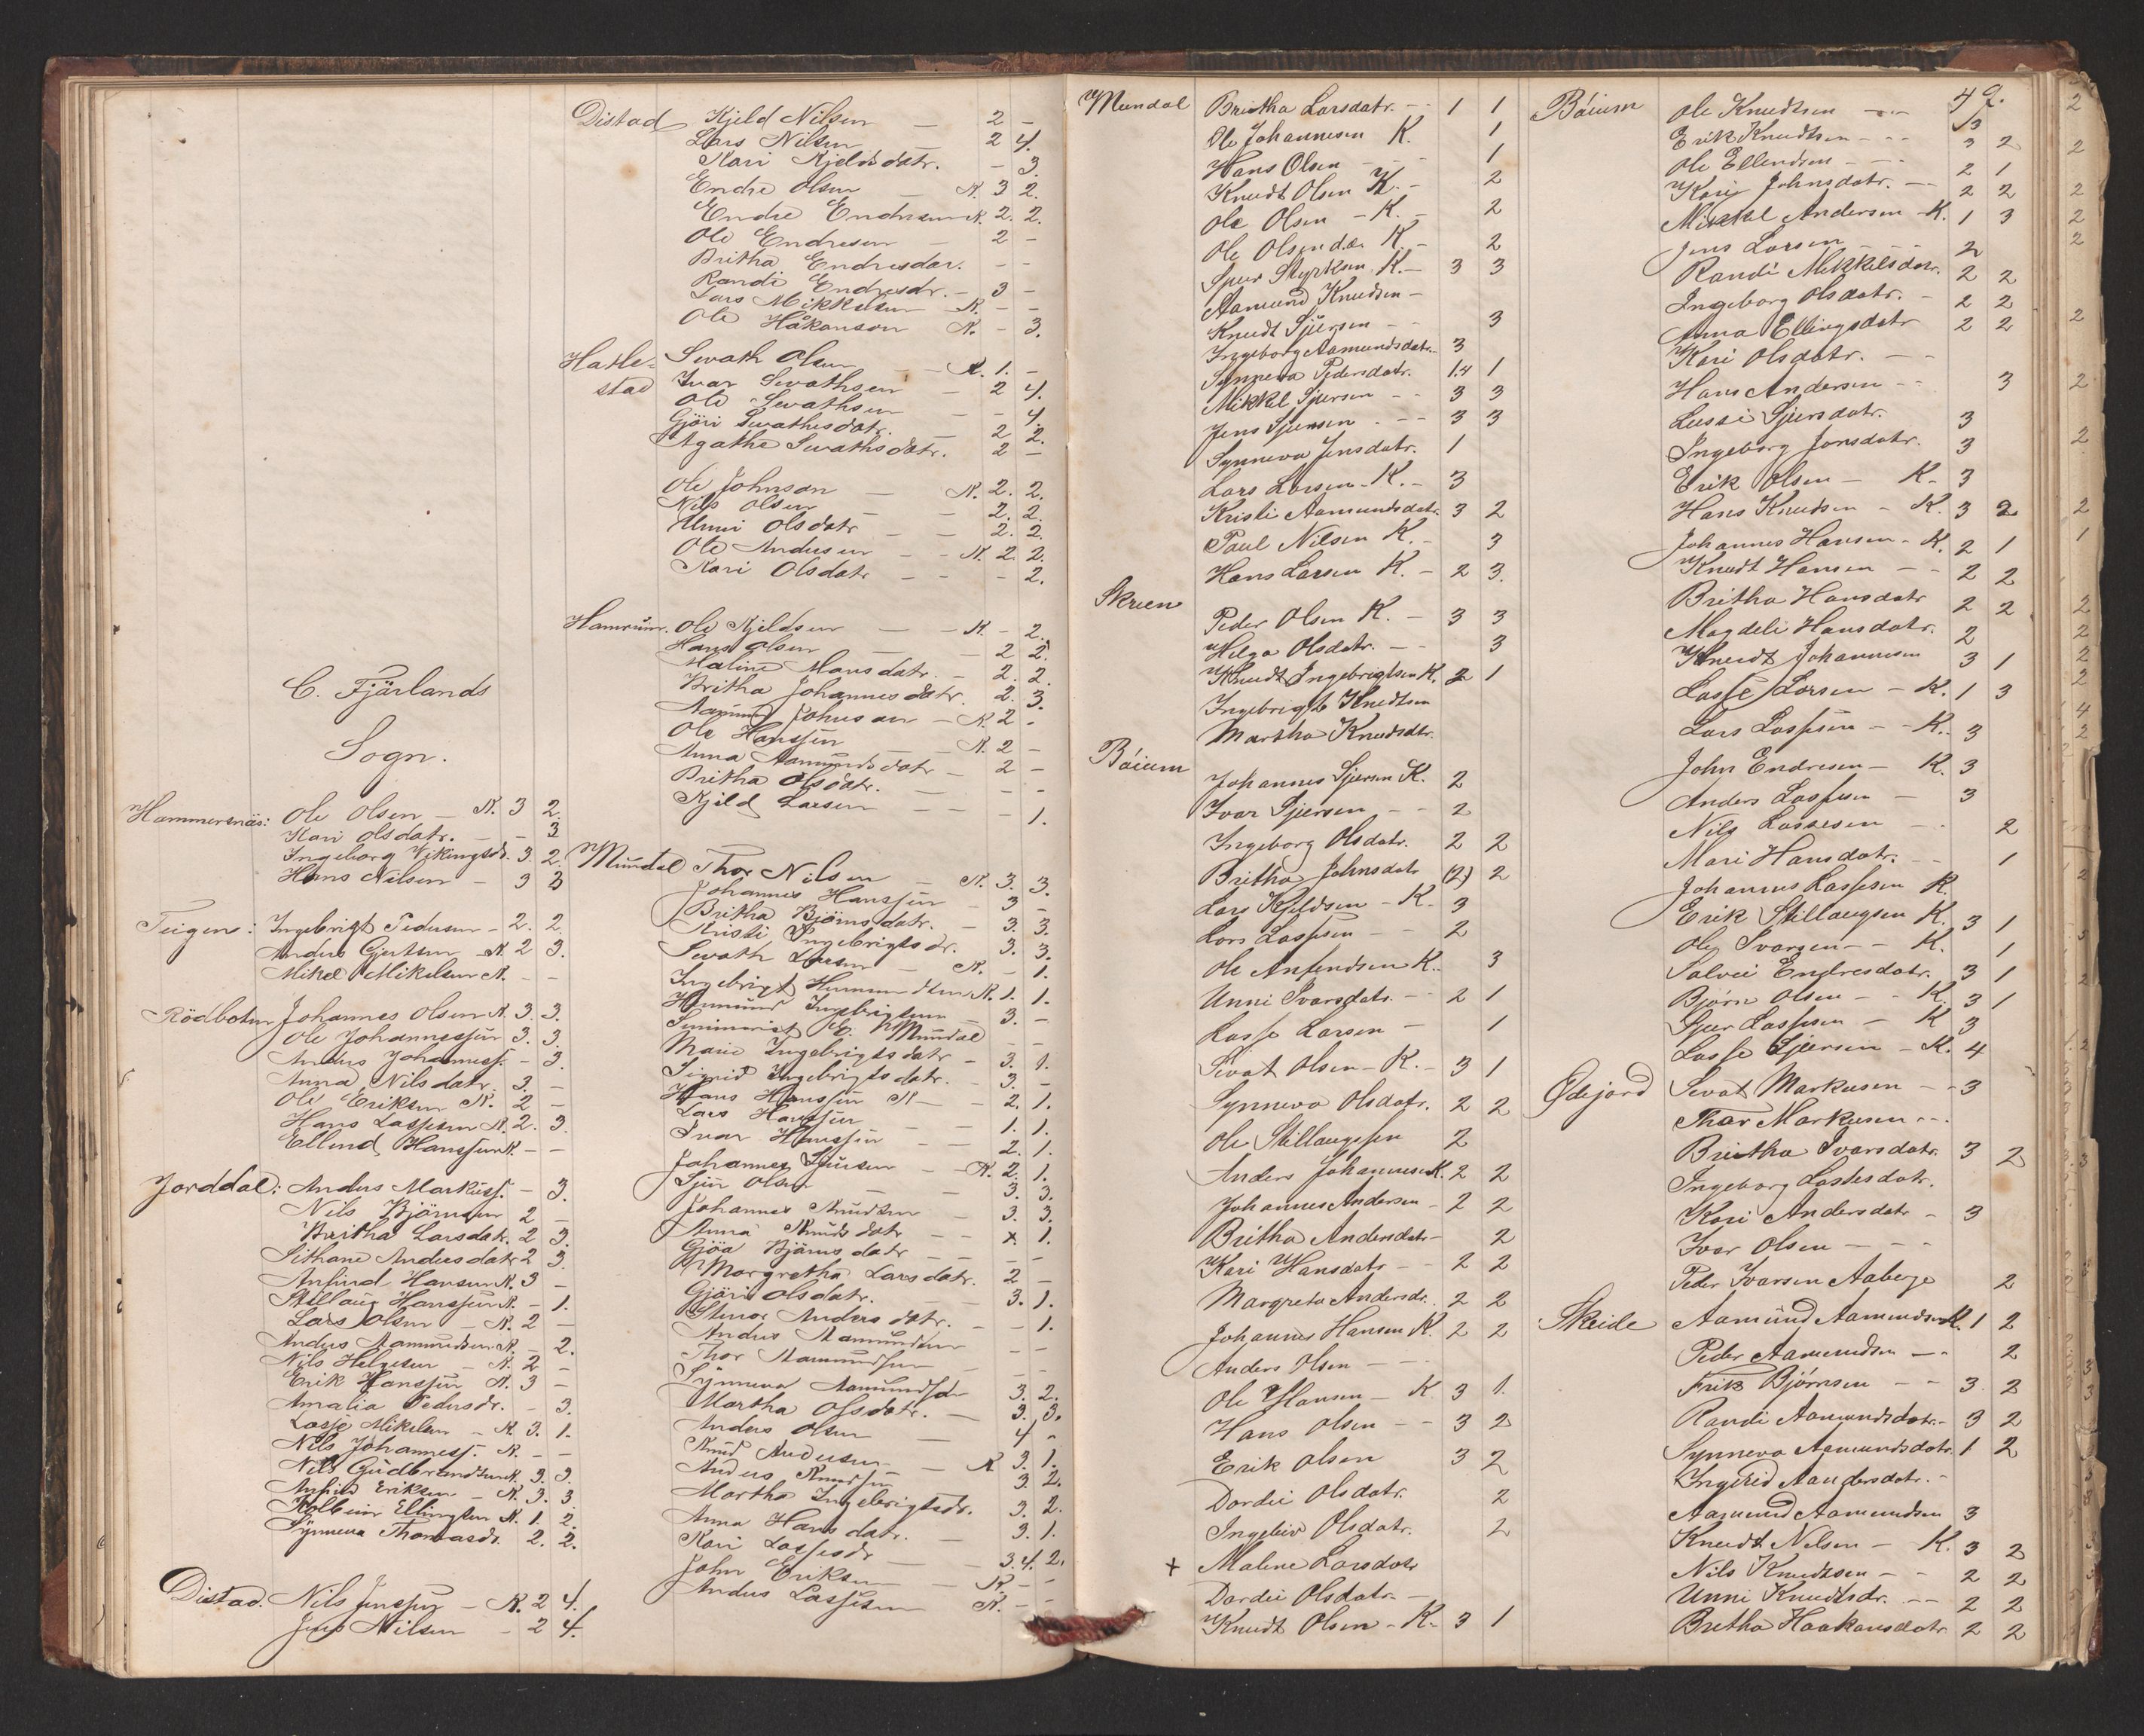 C. Fjärlands
Sogn.
Hammersnäs: Ole Olsen - K. 3 2.
Kari Olsdatr. - - 3
Ingeborg Vikingsd. 3. 2.
Hans Nilsen - 3 3
Teigen: Ingebrigt Pedersen - 2. 2.
Anders Gjertsen K. 2 3.
Mikel Mikelsen K. - -
Rödbotn Johannes Olsen K. 3. 3.
Ole Johannessen 3. 3.
Anders Johannesf. - 3.
Anna Nilsdatr. 3. -
Ole Eriksen K. 2 -
Hans Lassesen K. 2. 3.
Ellend Hanssen K. - -
Jorddal: Anders Markusf. - 3.
Nils Björnsen 2 -
Britha Larsdatr. 2 3.
Sithane Andersdatr 2 3.
Anfind Hansen K. 3 -
Stillaug Hanssen K. - 1.
Lars Olsen - K. 2 -
Anders Aamundsen K. - 2.
Nils Helgesen - K. 2 -
Erik Hanssen K. 3 -
Amalia Pedersdr. - 3.
Lasse Mikelsen - K. 3. 1.
Nils Johannesf. K. - -
Nils Gudbrandsen K. 3. 3.
Anfind Eriksen - K. 3. 3
Kolbein Ellingsen K. 1. 2.
Synneva Thomasdr. 2. 2.
Distad. Nils Jenssen - K. 2 4.
Jens Nilsen - 2 4.
Distad Kjeld Nilsen - 2 -
Lars Nilsen - 2 4.
Kari Kjeldsdatr. - 3.
Endre Olsen - K. 3 2.
Endre Endresen K. 2. 2.
Ole Endresen - 2 -
Britha Endresdar. - -
Randi Endresdr. - 3 -
Lars Mikkelsen - K. - -
Ole Håkonson K. - 3.
Hatle- Sevath Olsen - K. 1. -
stad Ivar Sevathsen - 2 4.
Ole Sevathsen - - 4.
Gjöri Sevathsdatr. - 2 2.
Agathe Sevathsdatr. 2 -
Ole Johnson - K. 2. 2.
Nils Olsen - - 2. 2.
Unni Olsdatr - - 2. 2.
Ole Andersen - - K. 2. 2.
Kari Olsdatr - - - 2.
Hamrum. Ole Kjeldsen - - K. - 2.
Hans Olsen - - 2 2.
Maline Hansdatr. - 2. 2.
Britha Johannesdatr. 2. 3.
Aamund Johnson - K. 2 -
Ole Hanssen - K. 2 -
Anna Aamundsdatr - 2 -
Britha Olsdatr. - - -
Kjeld Larsen - - - 1.
Mundal Thor Nilsen - K. 3. 3.
Johannes Hanssen - 3 -
Britha Björnsdatr. - 3. 3.
Kristi Ingebrigtsdr. 3. 3.
Sevath Larsen - K. - 1.
Ingebrigt Hummundsen K. 1. 1.
Hummund Ingebrigtsen 3. -
Seminarist Mundal - -
Marie Ingebrigtsdatr - 3. 1.
Sigrid Ingebrigtsdatr. - 3. -
Hans Hanssen K - 2. 1.
Lars Hanssen - 1. 1.
Ivar Hanssen - - 2. 1.
Johannes Sjursen - K. 2. 1.
Sjur Olsen - - 3. 3.
Johannes Knudsen - 3. 3.
Anna Knudsdatr - x 1.
Gjöa Bjärnsdatr - - -
Margretha Larsdatr. 2 -
Gjöri Olsdatr. - 3. 1.
Stenor Andersdatr. - - 1.
Anders Aamundsen - -
Thor Aamundsen - - -
Synneva Aamundsdr 3. 2.
Martha Olsdatr. - 3. 3.
Anders Olsen - 4 -
Knud Andersen - K 3. 1.
Anders Knudsen - 3. 2.
Martha Ingebrigtsdr. 3. 2.
Anna Hansdatr. - 3. 1.
Kari Lassesdr - 3.4. 2.
John Eriksen - K. - -
Anders Lassesen K. - -
Mundal Britha Larsdatr. - - 1 1
Ole Johannesen K. 1
Hans Olsen - - - 1
Knudt Olsen K. - 2
Ole Olsen - K. - 2
Ole Olsen d.æ. K. - 2
Sjur Styrksen K. - 3 3
Aamund Knudsen -
Knudt Sjursen - - 3
Ingeborg Aamundsdatr. - 3
Synneva Pedersdatr. 1.4 1
Mikkel Sjursen - - 3 3
Jens Sjursen - - - 3 3
Synneva Jensdatr. 1
Lars Larsen - K. - 3
Kristi Aamundsdatr. 3 2
Paul Nilsen K. - 3
Hans Larsen K. - 2 3.
Skreen Peder Olsen K. - 3 3
Helga Olsdatr. - - 3
Knudt Ingebrigtsen K. 2 1
Ingebrigt Knudtsen
Martha Knudsdtr.
Böium Johannes Sjursen K. 2
Ivar Sjursen - - 2
Ingeborg Olsdatr. 2 2
Britha Johnsdatr (2) 2
Lars Kjeldsen - K. - 3
Lars Lassesen - - 2
Ole Anfendsen K. - 3
Unni Ivarsdatr. - - 2 1
Lasse Larsen - 1
Sevat Olsen - K. - 3 1
Synneva Olsdatr. 2 2
Ole Stillaugssen 2
Anders Johannesen K. 2 2
Johannes Andersen - 2 2
Britha Andersdatr - 2
Kari Hansdatr - - 2 2
Margreta Andersdr. 2 2
Johannes Hansen K. 2 2
Anders Olsen - - -
Ole Hansen - K 3 1.
Hans Olsen - - 3 2
Erik Olsen 3 2
Dordei Olsdatr. 2
Ingebiør Olsdatr. 2
x Maline Larsdatr
Dordei Olsdatr. -
Knudt Olsen - K. 3 1
49.
Böium Ole Knudtsen - - 3
Erik Knudtsen - - - 3 2
Ole Ellendsen - - - 2 1
Kari Johnsdatr. - - 2 2
Mikkel Andersen - K. 1 3
Jens Larsen - - - 2
Randi Mikkelsdatr. 2 2
Ingeborg Olsdatr. - 2 2
Anna Ellingsdatr 2 2
Kari Olsdatr. - -
Hans Andersen - - 3
Lussi Sjursdatr. 3
Ingeborg Jonsdatr. 3
Erik Olsen - K. 3
Hans Knudsen - K. 3 2
Johannes Hansen - K. 2 1
Knudt Hansen - - 2 2
Britha Hansdatr 2 2
Magdeli Hansdatr. 2
Knudt Johannesen 3 1
Lasse Larsen - K. 1 3
Lars Lassesen - - K. 3
John Endresen - K. 3
Anders Lassesen - 3
Nils Lassesen - - 2
Mari Hansdatr. - - 1
Johannes Lassesen K.
Erik Stillaugsen K. 3 1
Ole Ivarsen - - K. 1
Salvei Endresdatr. 3 1
Bjørn Olsen - - K. 3 1
Sjur Lassesen - K 3
Lasse Sjursen - K. 4
Ødejord Sevat Markusen - - 3
Thor Markusen - - -
Britha Ivarsdatr. 3 2
Ingeborg Lassesdatr.
Kari Andersdatr - 3
Ivar Olsen - - -
Peder Ivarsen Aaberge 2
Skeide Aamund Aamundsen K. 1 2
Peder Aamundsen - - 2
Erik Bjørnsen - - 3 2
Randi Aamundsdatr. - 3 2
Synneva Aamundsdatr. 1 2
Ingerid Aandersdatr. -
Aamund Aamundsen 3
Knudt Nilsen - K. 3 2
Nils Knudtsen - - 2 2
Unni Knudtsdr. - - 2 2
Britha Haakonsdatr 2 2